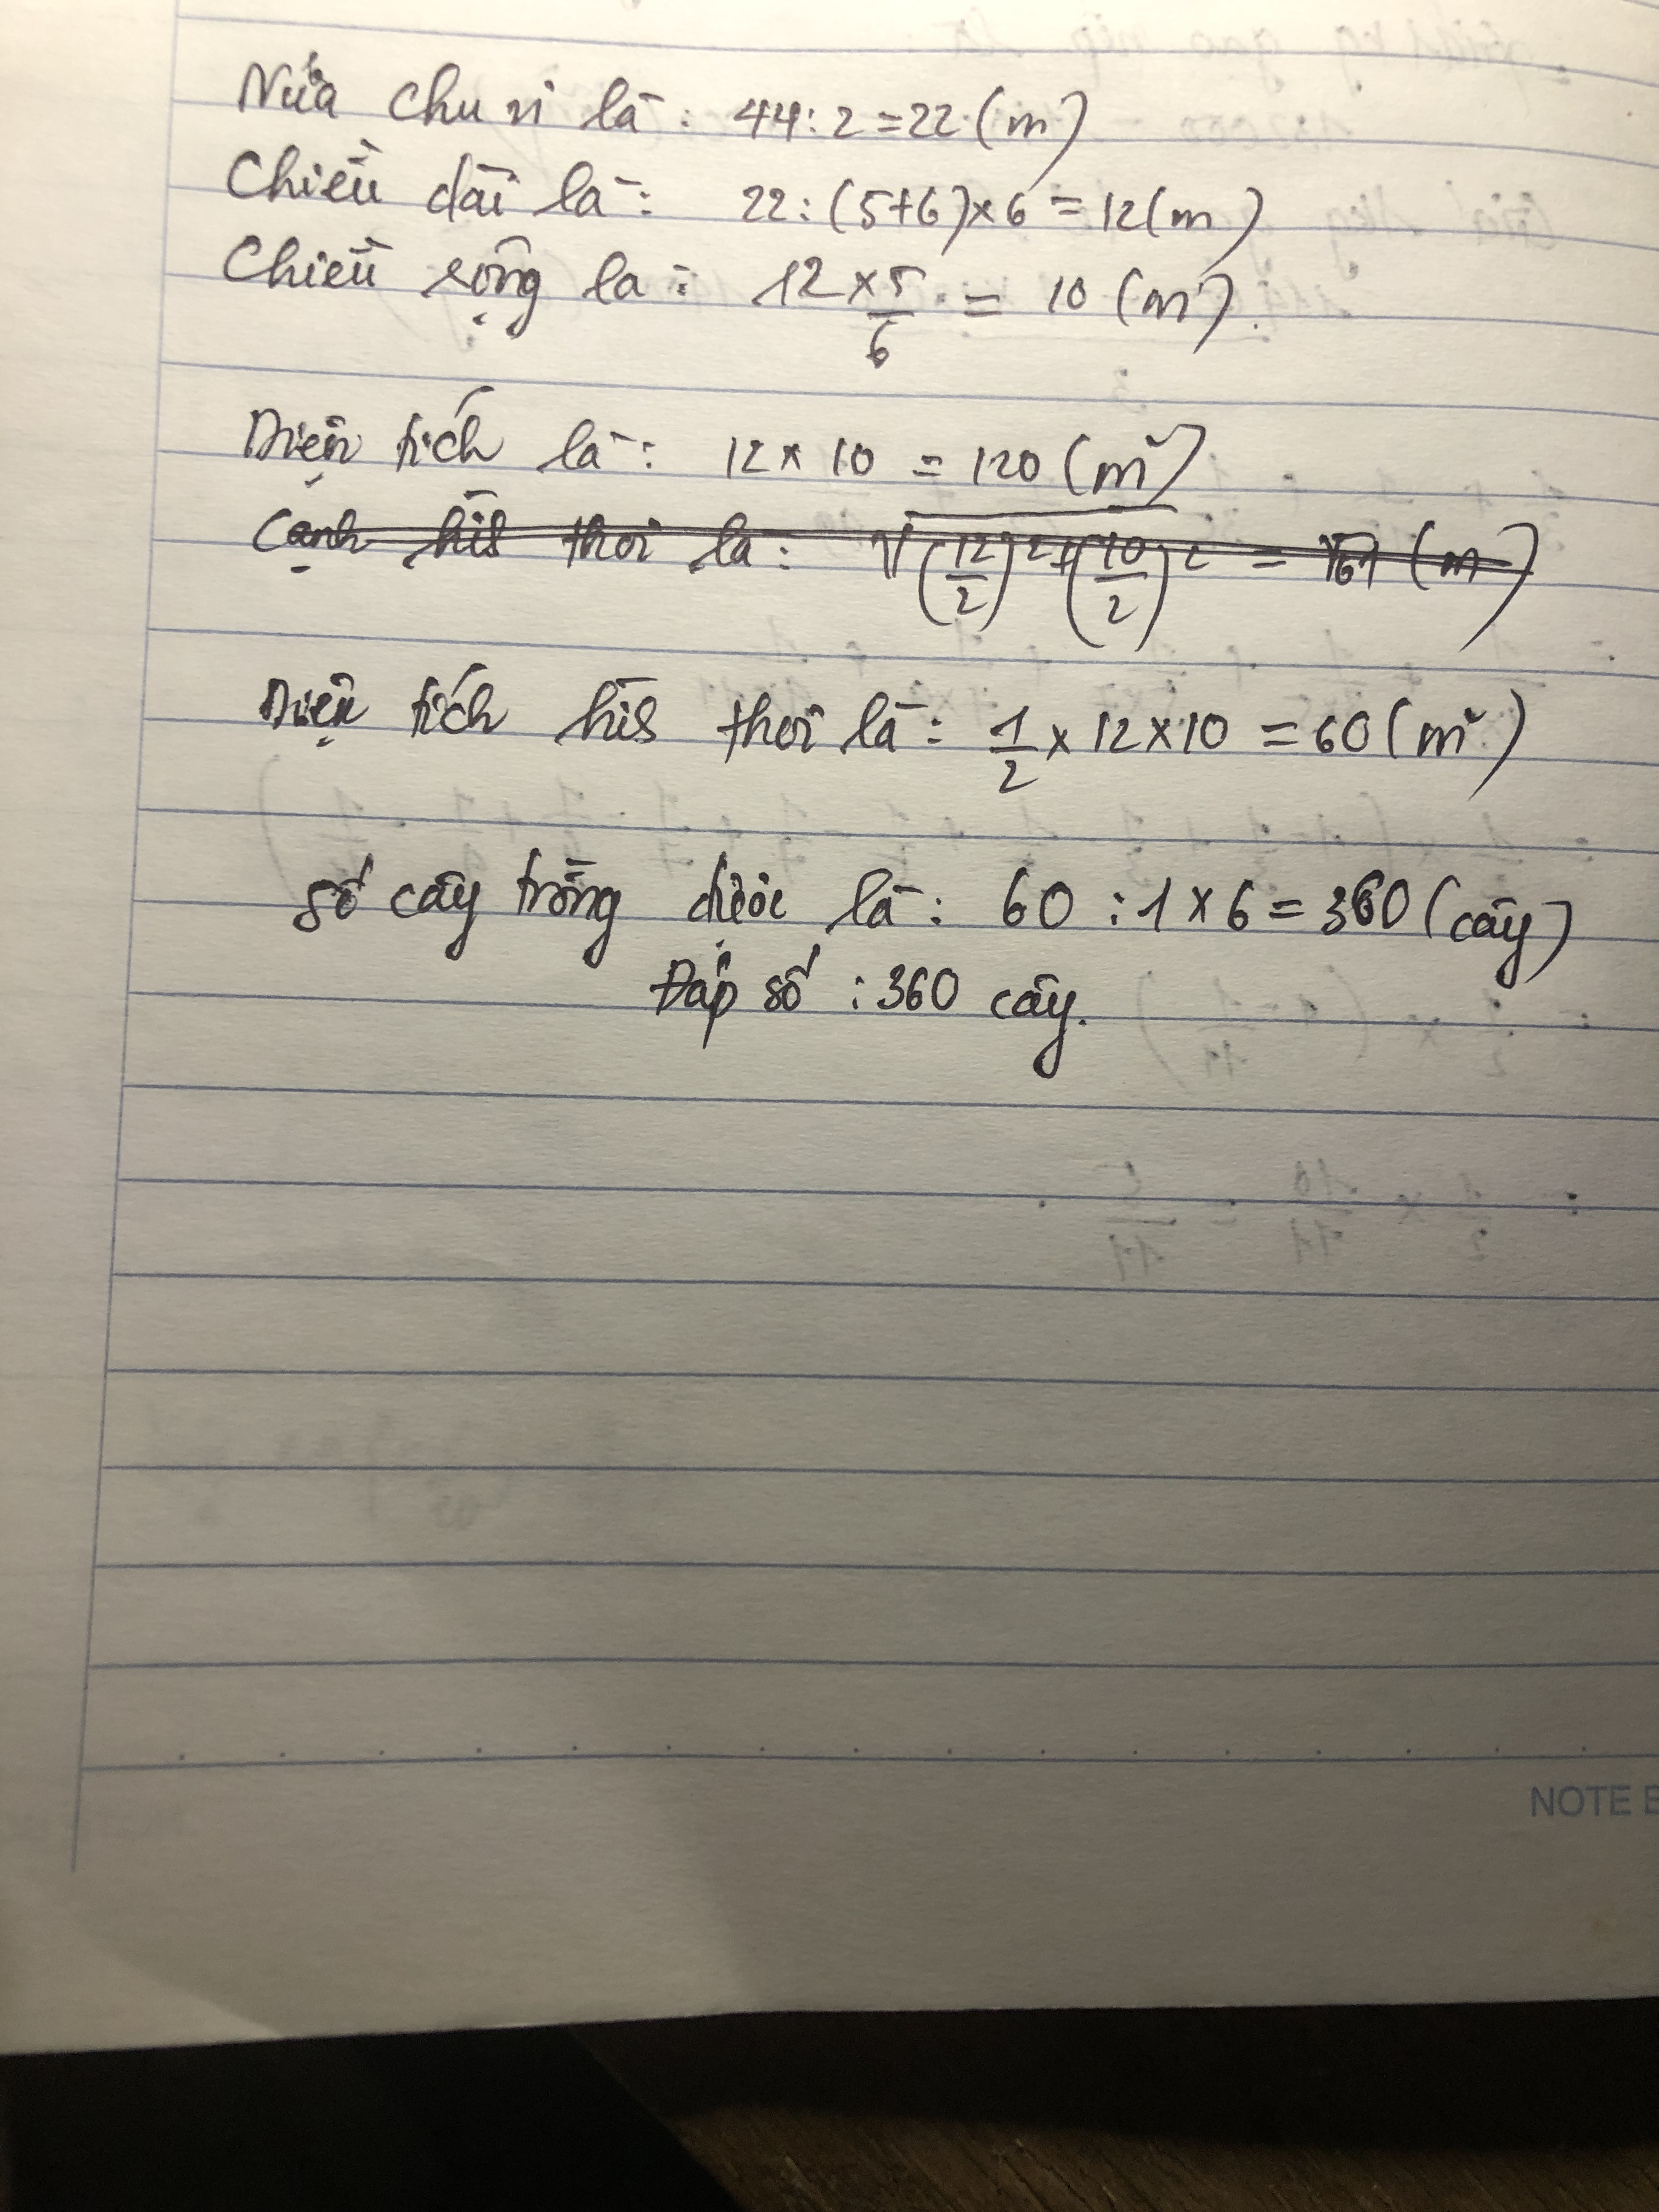 Nửa chu vi là: 44:2=22 (m)
Chiều dài là: 22:(5+6)×6=12(m)
Chiều rộng là: 12×5/6 = 10 (m).
Diện tích là: 12×10 = 120 (m²)
Cạnh hìs thoi là: √(12/2)²+(10/2)² = √61 (m)
Diện tích hìs thoi là: 1/2×12×10 = 60 (m²)
Số cây trồng được là: 60:1×6=360 (cây)
Đáp số: 360 cây.
NOTE B